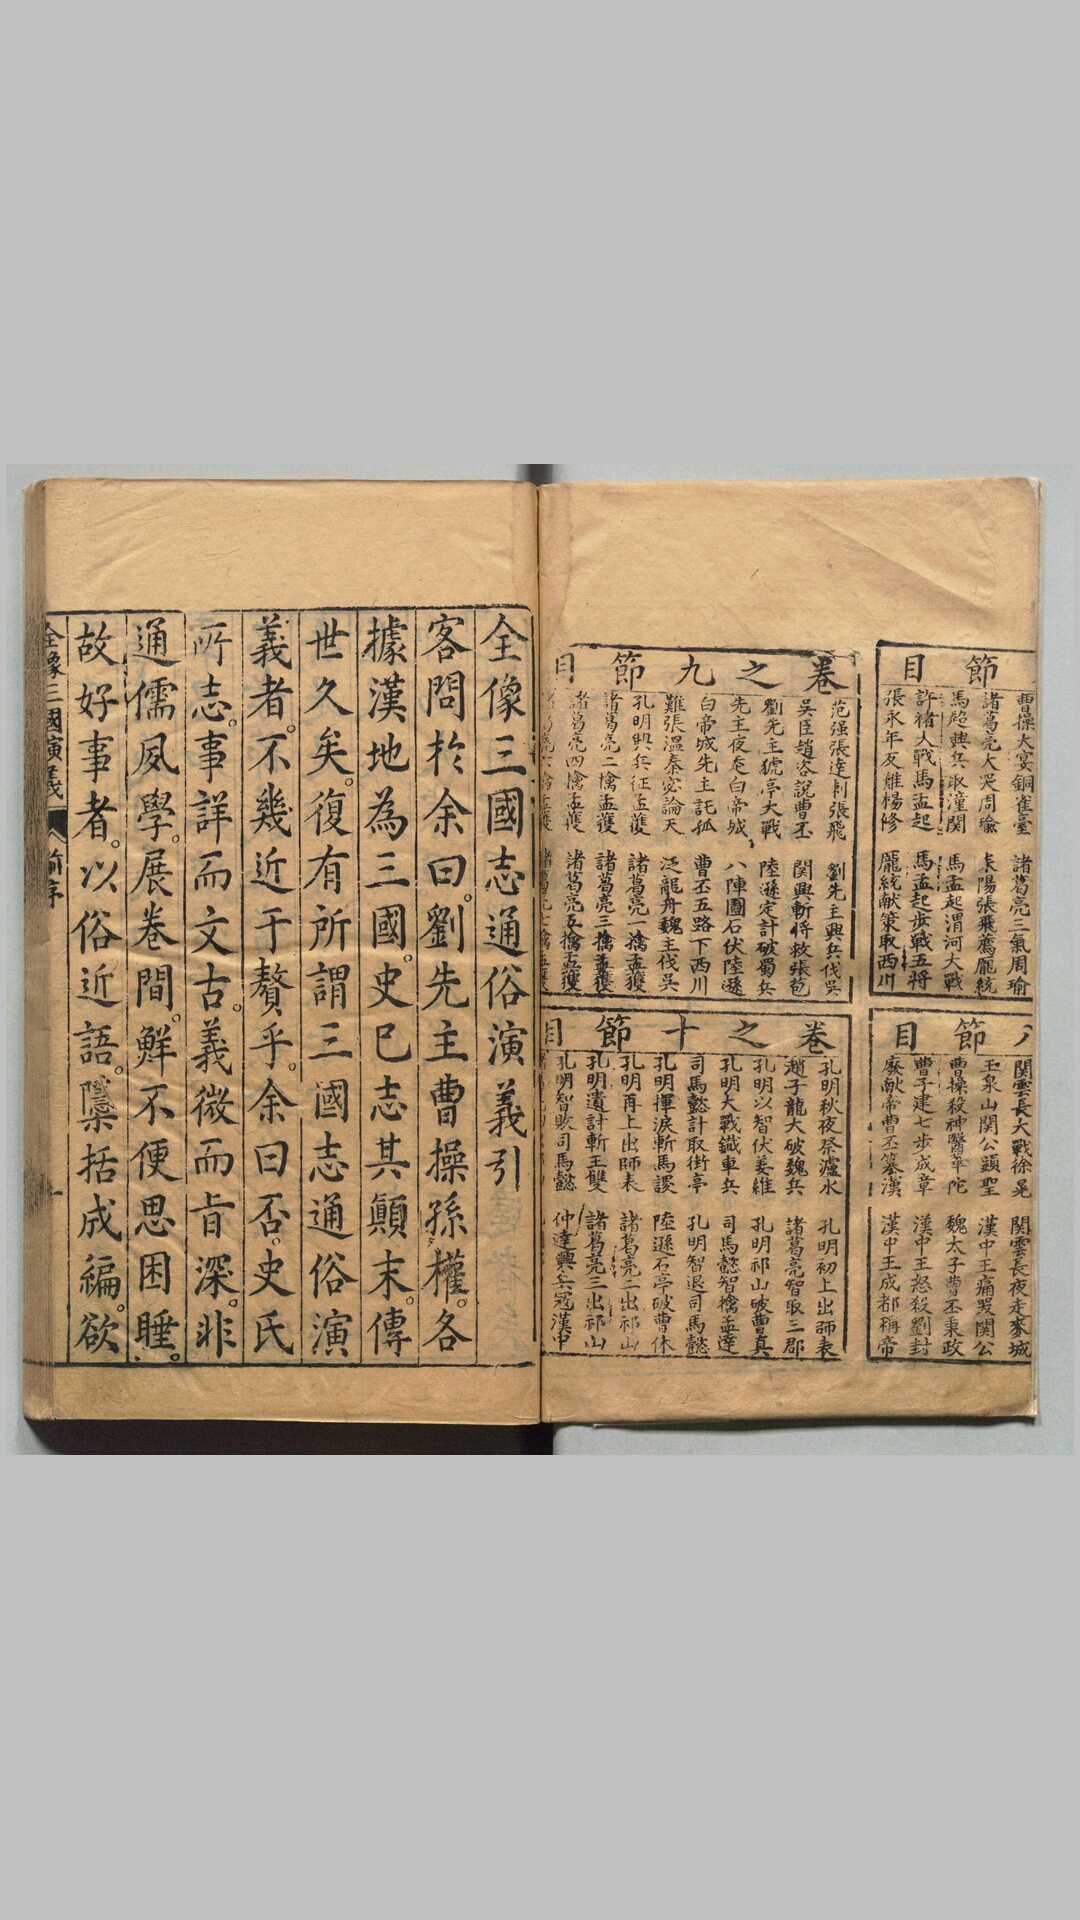 節目
曹操大宴銅雀臺　諸葛亮三氣周瑜
諸葛亮大哭周瑜　耒陽張飛薦龐統
馬超興兵取潼関　馬孟起渭河大戰
許褚大戰馬孟起　馬孟起步戰五将
張永年反難楊修　龐統献策取西川
八節目
関雲長大戰徐晃　関雲長夜走麥城
玉泉山関公顕聖　漢中王痛哭関公
曹操殺神醫華陀　魏太子曹丕秉政
曹子建七步成章　漢中王怒殺劉封
廢献帝曹丕篡漢　漢中王成都稱帝
卷之九節目
范强張達刺張飛　劉先主興兵伐吳
吳臣趙咨說曹丕　関興斬将救張苞
劉先主猇亭大戰　陸遜定計破蜀兵
先主夜走白帝城　八陣圖石伏陸遜
白帝城先主託孤　曹丕五路下西川
難張温秦宓論天　泛龍舟魏主伐吳
孔明興兵征孟獲　諸葛亮一擒孟獲
諸葛亮二擒孟獲　諸葛亮三擒孟獲
諸葛亮四擒孟獲　諸葛亮五擒孟獲
諸葛亮六擒孟獲　諸葛亮七擒孟獲
卷之十節目
孔明秋夜祭瀘水　孔明初上出師表
趙子龍大破魏兵　諸葛亮智取三郡
孔明以智伏姜維　孔明祁山破曹真
孔明大戰鐵車兵　司馬懿智擒孟達
司馬懿計取街亭　孔明智退司馬懿
孔明揮淚斬馬謖　陸遜石亭破曹休
孔明再上出師表　諸葛亮二出祁山
孔明遺計斬王雙　諸葛亮三出祁山
孔明智敗司馬懿　仲達興兵冦漢中
全像三國志通俗演義引
客問於余曰。劉先主曹操孫權。各
據漢地為三國。史已志其顛末。傳
世久矣。復有所謂三國志通俗演
義者。不幾近于贅乎。余曰否。史氏
所志。事詳而文古。義微而旨深。非
通儒夙學。展卷間。鮮不便思困睡。
故好事者。以俗近語。檃括成編。欲
全像三國演義　前序